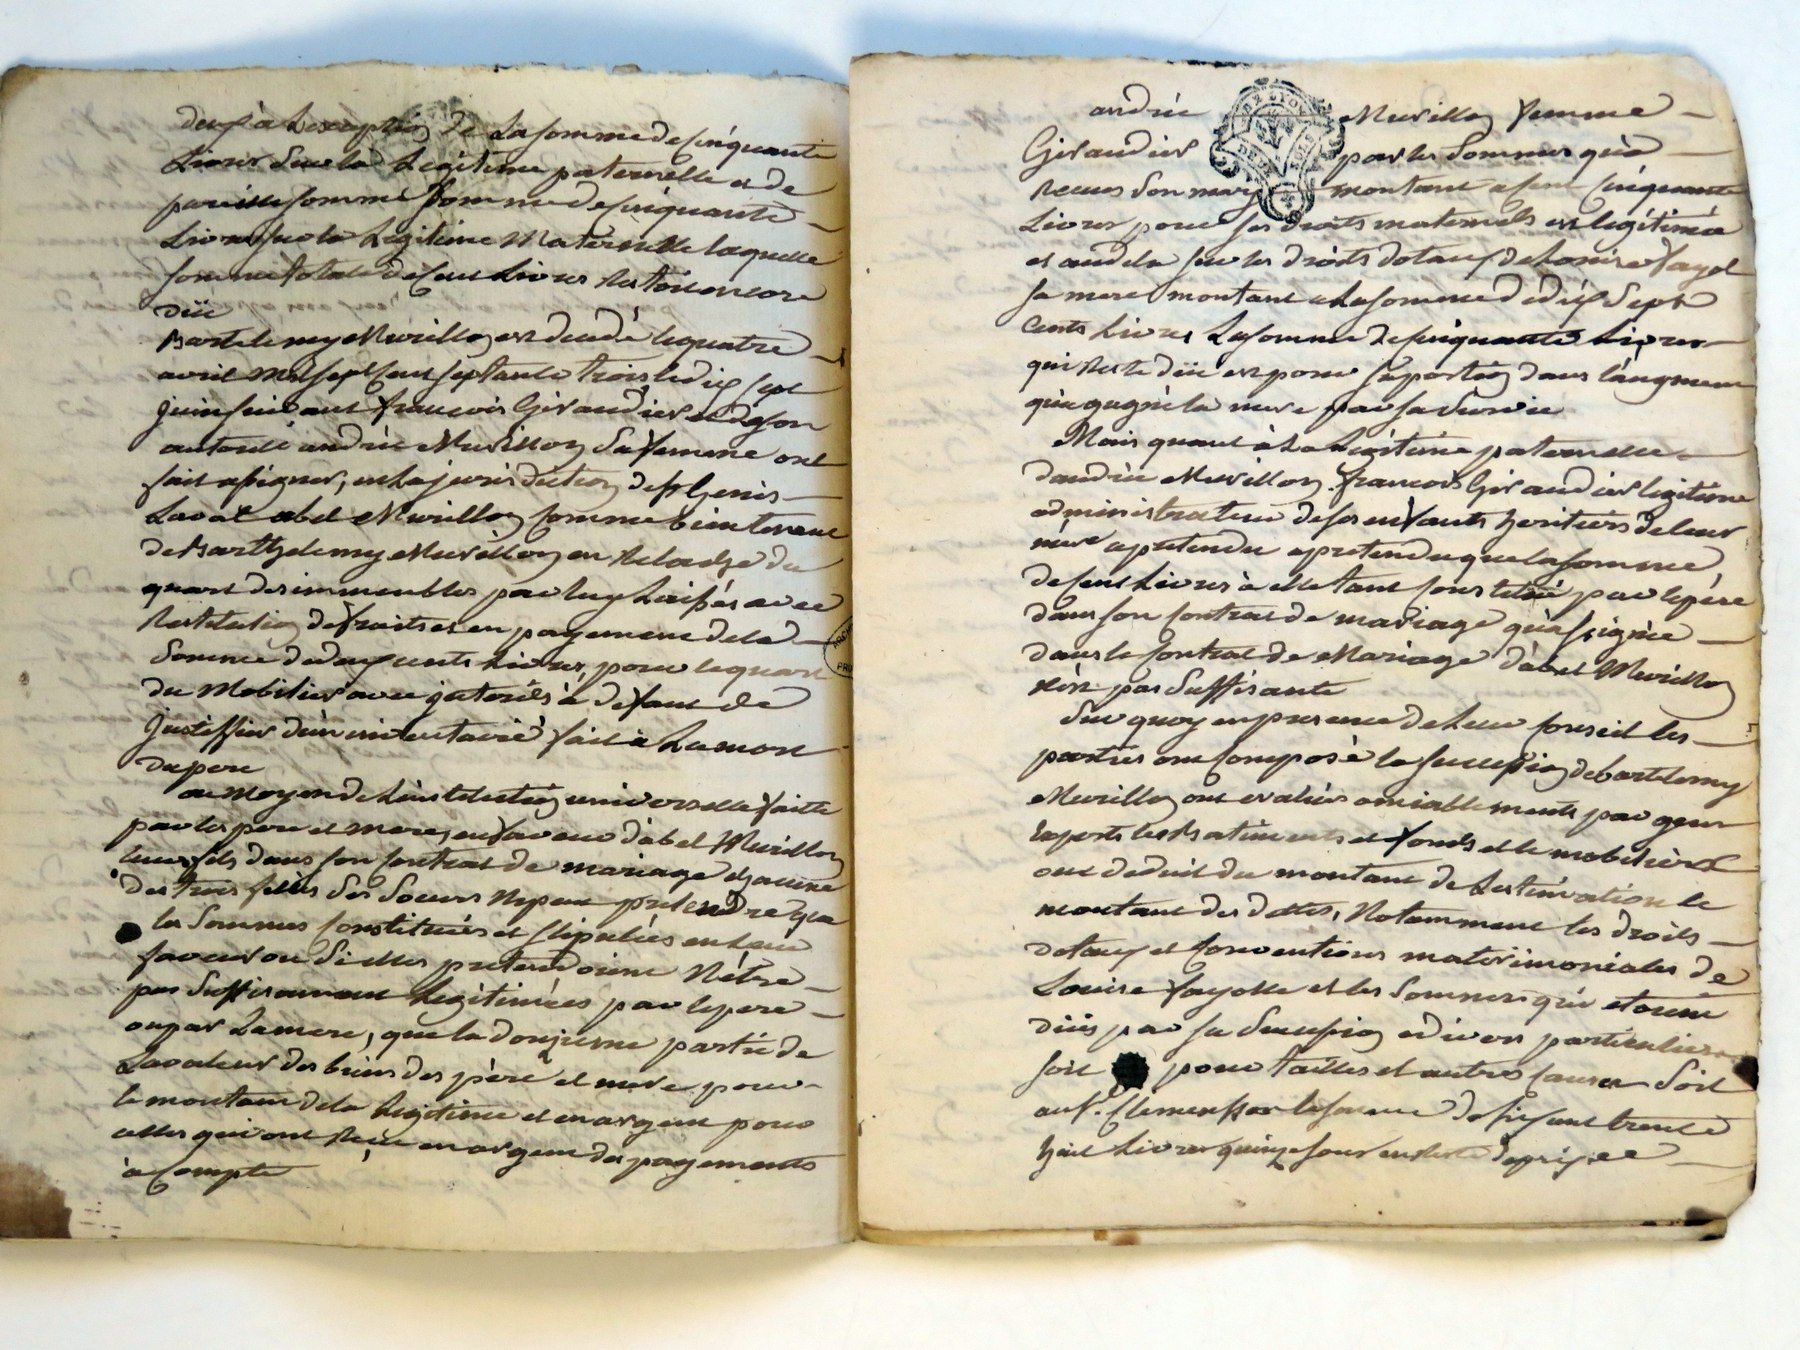 deux à Lexception de la somme de cinquante
Livres sur la Legitime paternelle et de
pareille somme somme de cinquante
Livres sur la Legitime Maternelle laquelle
somme totale de cent Livres restoit encore
düe
Bartelemy Murillon est decedé le quatre
avril mil sept cent septante trois le dix sept
juin suivant francois Giraudier et de son
autorité andrée Murillon sa femme ont
fait assigner, en la jurisdiction de st Genis
Laval abel Murillon comme bientenant
de Barthelemy Murillon en relache du
quart des immeubles par luy Laissés avec
restitution de fruits et en payement de la
Somme de deux cents Livres, pour le quart
du Mobilier avec interets à defaut de
justiffier d'un inventaire fait à La mort
du pere
au moyen de L'institution universelle faite
par les pere et mere, en faveur d'abel Murillon
leur fils dans son contrat de mariage chacune
des trois filles ses soeurs ne peut pretendre que
les Sommes constituées et stipulées en leur
faveur ou si elles pretendoient N'être
pas suffisamment Legitimées par le pere
ou par La mere, que la douzieme partie de
La valeur des biens des père et mere pour
le montant de la Legitime et en argent pour
celles qui ont reçu en argent des payements
à compte
andrée Murillon femme
Giraudier par les Sommes qu'a
recues Son mary montant a cent cinquante
Livres pour ses droits maternels est legitimée
et au dela sur les droits dotaux de Louise fayol
sa mere montant a La somme de dix sept
Cents Livres La somme de cinquante Livres
qui reste düe est pour sa portion dans l'augment
qu'a gagné la mere par sa Survie
Mais quant à La Legitime paternelle
d'andrée Murillon francois Giraudier legitime
administrateur de ses enfants heritiers de leur
mére a pretendu a pretendu que la somme
de cent Livres à elle tant constituée par le père
dans son contrat de mariage qu'assignée
dans le contrat de Mariage d'abel Murillon
n'est pas Suffisante
Sur quoy en presence de Leur conseil les
parties ont composé la succession de bartelemy
Murillon ont evalués amiablements par gens
Experts les Batiments et fonds et le mobilier
ont deduit du montant de Lestimation le
montant des dettes, Notamment les droits
dotaux et conventions matrimoniales de
Louise fayolle et les Sommes qui etoient
düës par sa Succession a divers particuliers
soit pour tailles et autres causes Soit
au sr. Clement par la somme de six cent trente
huit Livres quinze sous